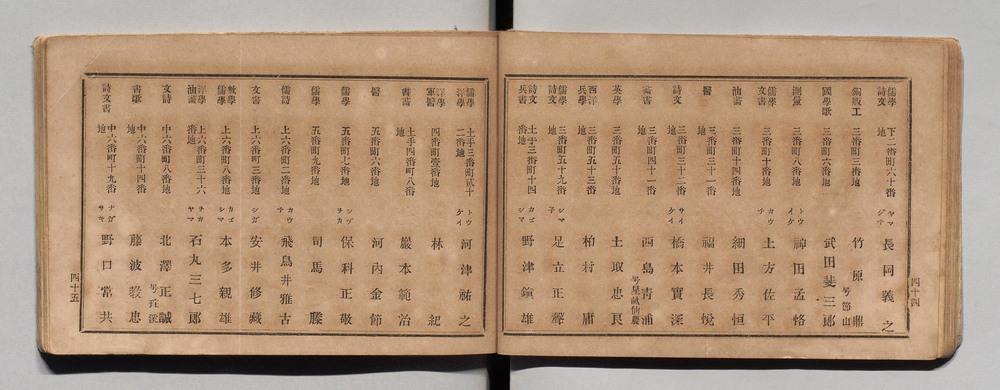 儒學詩文 下二番町六十番地 ヤマグチ 長岡義之
銅版工 三番町三番地 竹原鼎 号節山
國學歌 三番町六番地 武田斐三郎
測量 三番町八番地 トウケイ 神田孟恪
儒學文書 三番町十番地 カウチ 土方佐平
油畵 三番町十四番地 細田秀恒
醫 三番町三十一番地 福井長悅
詩文 三番町三十二番地 サイケイ 橋本實深
畵書 三番町四十一番地 西島靑浦 号星畝仙農
英學 三番町五十番地 土取忠良
西洋兵學 三番町五十三番地 柏村庸
詩文儒學 三番町五十九番地 シマ子 足立正聲
詩文兵書 土手三番町十四番地 シマ子 野津鎭雄
四十四
儒學洋學 土手三番町貳十二番地 トウケイ 河津祐之
洋學軍醫 四番町壹番地 林紀
書畵 土手四番町八番地 巖本範治
醫 五番町六番地 河內金節
儒學 五番町七番地 シヅヲカ 保科正敬
儒學 五番町九番地 司馬𣘺
儒詩 上六番町二番地 カウチ 飛鳥井雅古
文書 上六番町三番地 シガ 安井修藏
數學儒學 上六番町八番地 カゴシマ 本多親雄
洋學油畵 上六番町三十六番地 ヲカヤマ 石丸三七郎
文詩 中六番町八番地 北澤正誠 号
書歌 中六番町十四番地 藤波敎忠
詩文書 中六番町十九番地 ナガサキ 野口常共
四十五